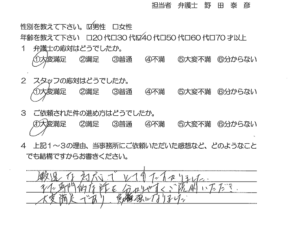 担当者 弁護士 野田泰彦
性別を教えて下さい。 男性 □女性
年齢を教えて下さい □20代□30代 40代□50代□60代□70才以上
1 弁護士の応対はどうでしたか。
①大変満足 ②満足 ③普通 ④不満 ⑤大変不満 ⑥分からない
2 スタッフの応対はどうでしたか。
①大変満足 ②満足 ③普通 ④不満 ⑤大変不満 ⑥分からない
3 ご依頼された件の進め方はどうでしたか。
①大変満足 ②満足 ③普通 ④不満 ⑤大変不満 ⑥分からない
4 上記1~3の理由、当事務所にご依頼いただいた感想など、どのようなこと
でも結構ですからお書きください。
敏速な対応でとても助かりました。
また専門的な件を分かりやすくご説明いただき
大変満足であり になりました